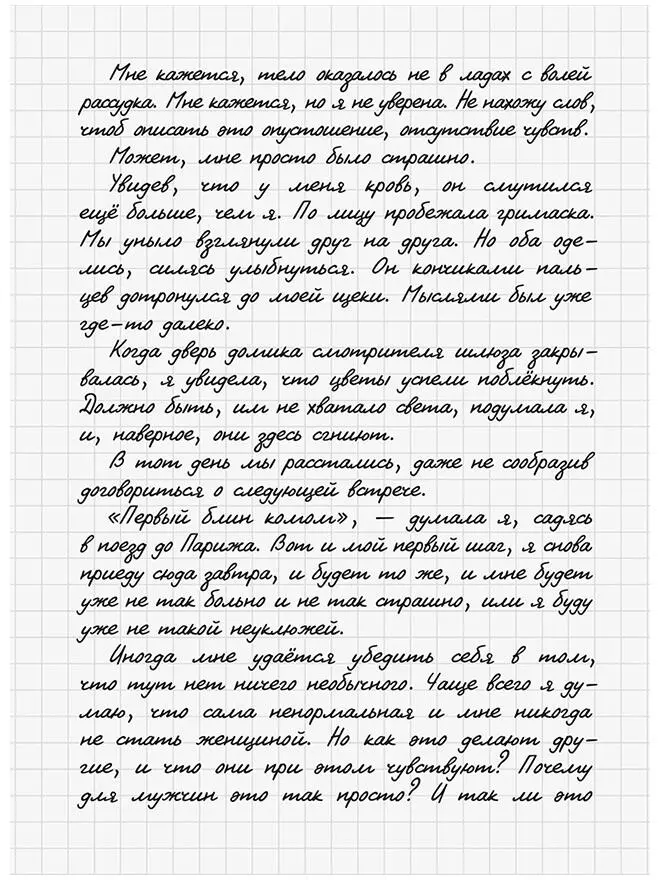 Мне кажется, тело оказалось не в ладах с волей
рассудка. Мне кажется, но я не уверена. Не нахожу слов,
чтоб описать это опустошение, отсутствие чувств.
Может, мне просто было страшно.
Увидев, что у меня кровь, он смутился
ещё больше, чем я. По лицу пробежала гримаска.
Мы уныло взглянули друг на друга. Но оба оде-
лись, силясь улыбнуться. Он кончиками паль-
цев дотронулся до моей щеки. Мыслями был уже
где-то далеко.
Когда дверь домика смотрителя шлюза закры-
валась, я увидела, что цветы успели поблёкнуть.
Должно быть, им не хватало света, подумала я,
и, наверное, они здесь сгниют.
В тот день мы расстались, даже не сообразив
договориться о следующей встрече.
«Первый блин комом», — думала я, садясь
в поезд до Парижа. Вот и мой первый шаг, я снова
приеду сюда завтра, и будет то же, и мне будет
уже не так больно и не так страшно, или я буду
уже не такой неуклюжей.
Иногда мне удаётся убедить себя в том,
что тут нет ничего необычного. Чаще всего я ду-
маю, что сама ненормальная и мне никогда
не стать женщиной. Но как это делают дру-
гие, и что они при этом чувствуют? Почему
для мужчин это так просто? И так ли это